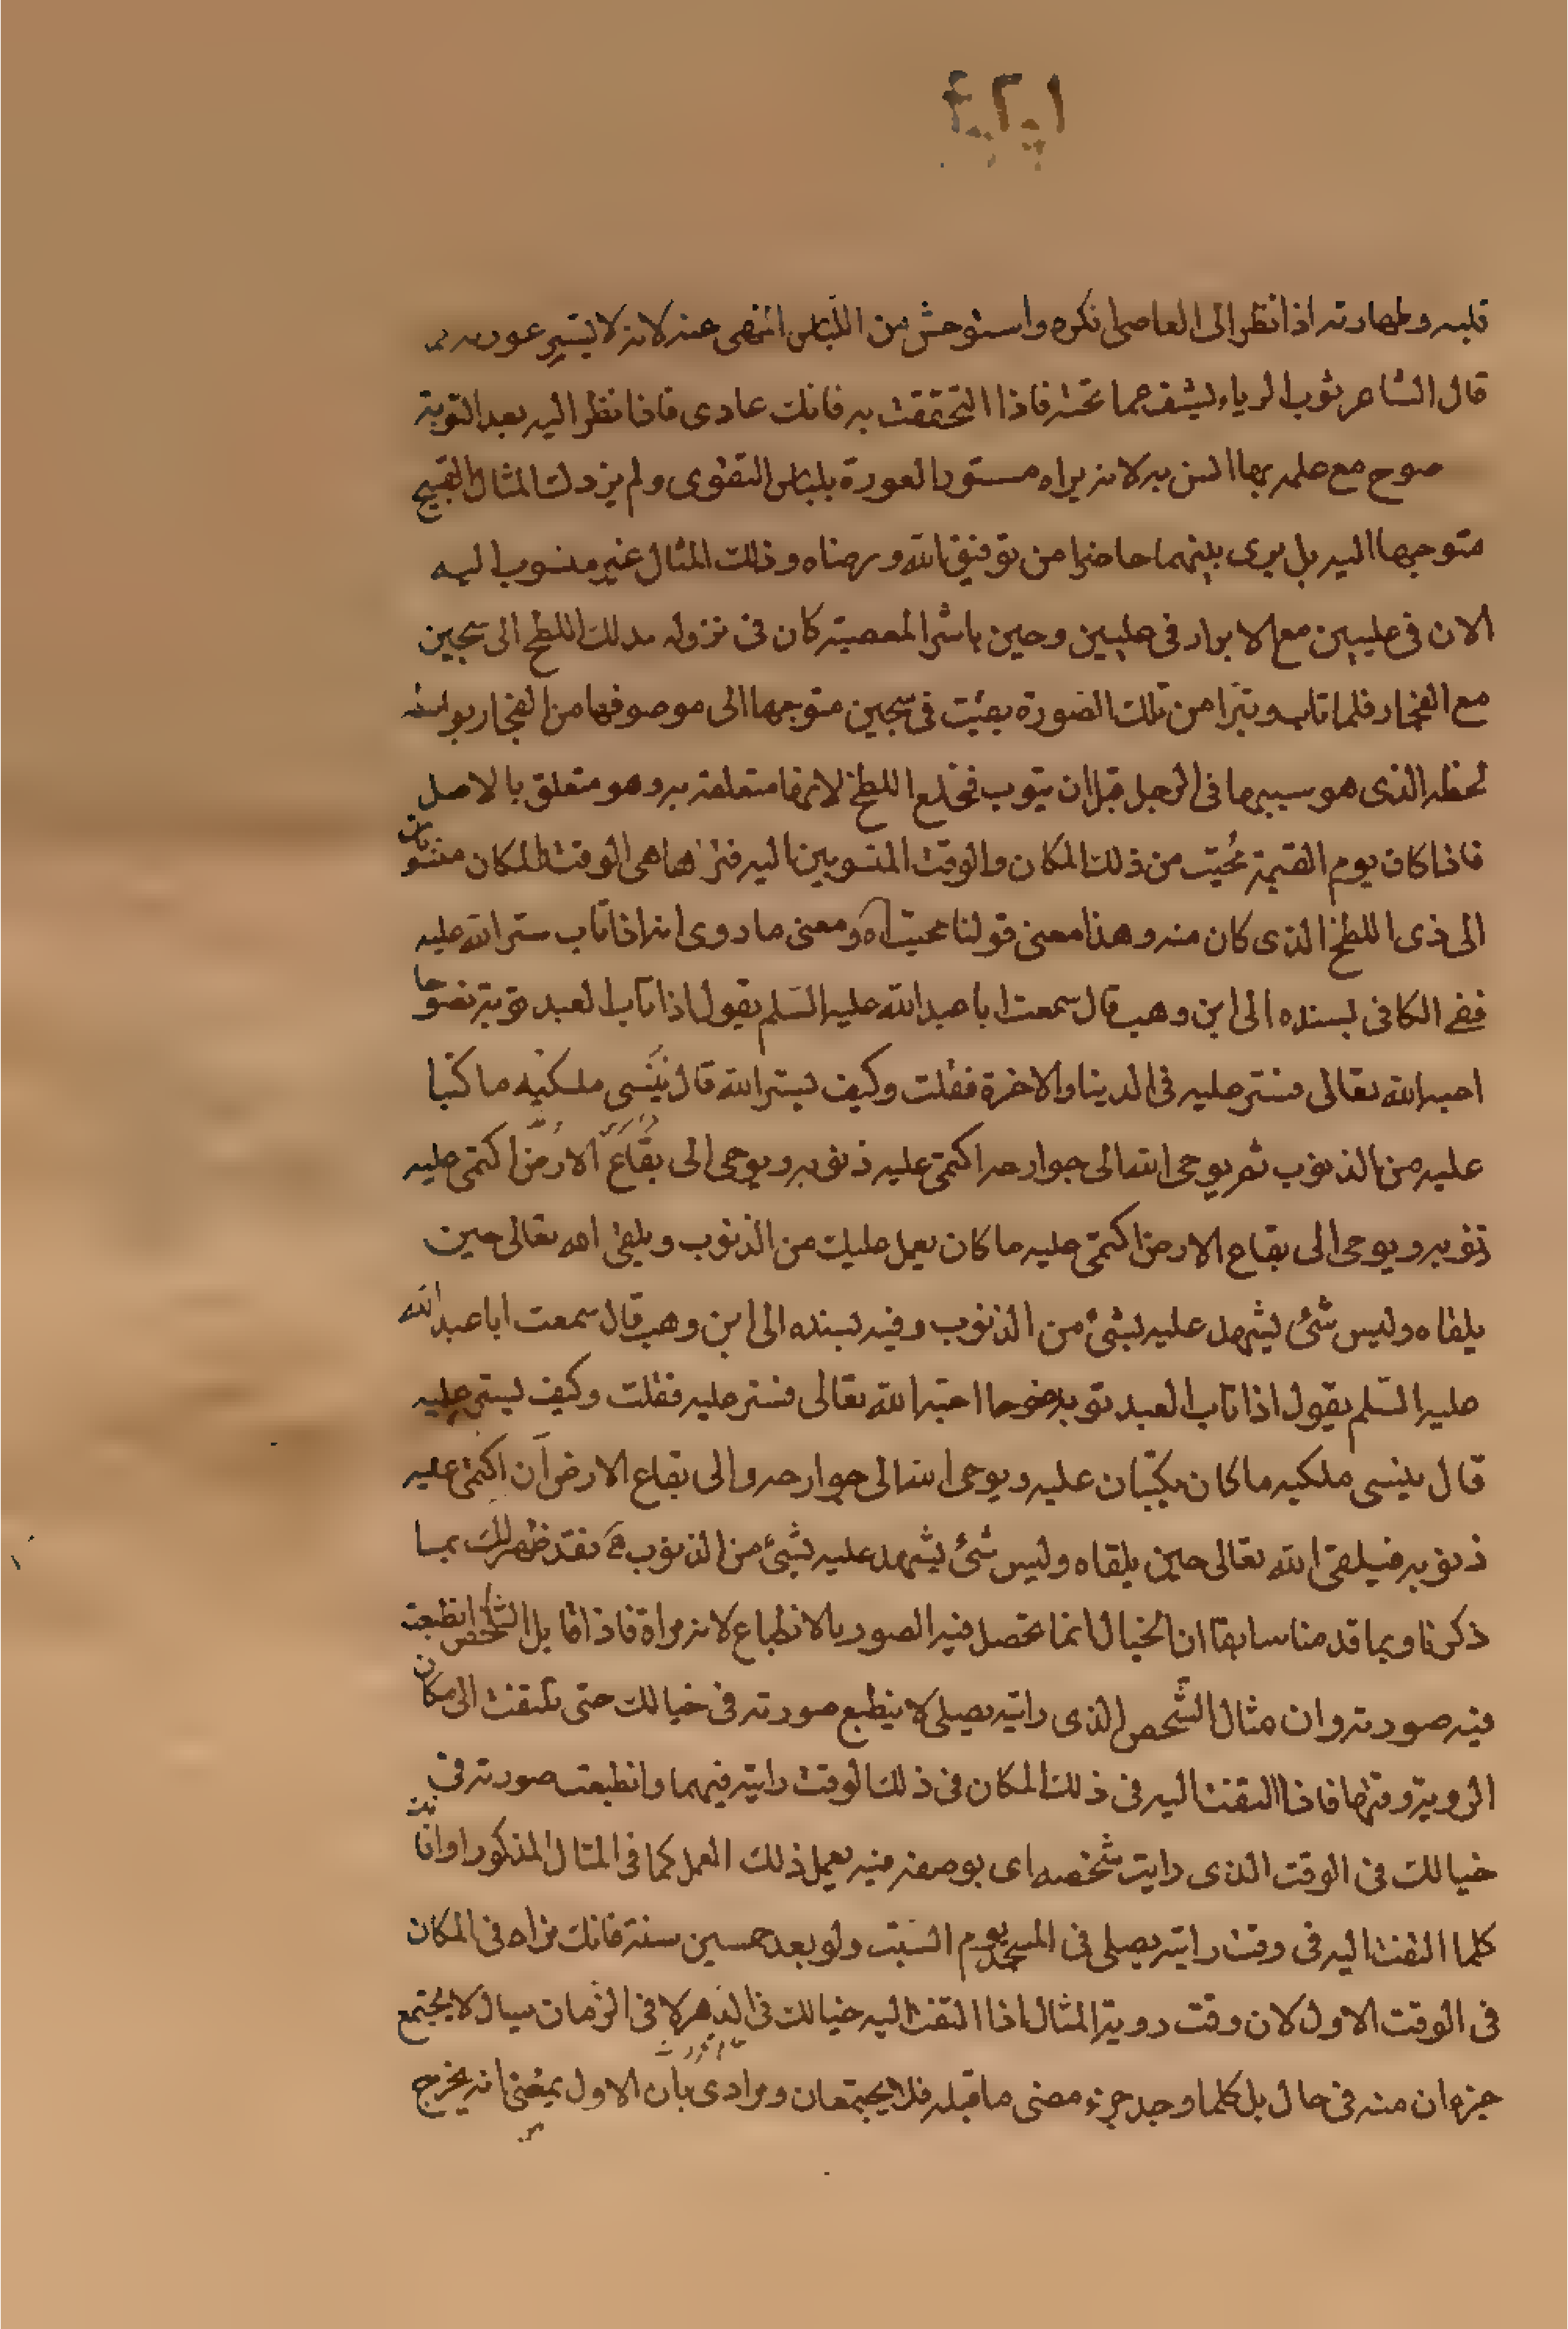 قلبه وطهارته اذا نظر الى العاصى انكره واستوحش من اللباس المنهى عنه لانه لا يستر عورته
قال الشاعر ثوب الرياء يشف عما تحته فاذا التحفت به فانك عارى فاذا نظر اليه بعد التوبة
مع علمه بها انس به لانه يراه مستور العورة بلباس التقوى ولم ير ذلك المثال القبيح
متوجها اليه بل يرى بينهما حاضرا من توفيق الله ورضاه وذلك المثال غير منسوب اليه
الان فى عليين مع الابرار فى عليين وحين باشر المعصية كان فى نزوله بذلك اللطخ الى سجين
مع الفجار فلما تاب وتبرا من تلك الصورة بقيت فى سجين متوجها الى موصوفها من الفجار بواسطة
لحظه الذى هو سببها فى الرجل قبل ان يتوب فخلع اللطخ لانها متعلقة به وهو متعلق بالاصل
فاذا كان يوم القيمة محيت من ذلك المكان والوقت المنسوبين اليه فتر اها هى الوقت والمكان منسوبان
الى ذى اللطخ الذى كان منه وهذا معنى قولنا محيت اه ومعنى ما روى انه اذا تاب ستر الله عليه
ففى الكافى بسنده الى ابن وهب قال سمعت ابا عبد الله عليه السلم يقول اذا تاب العبد توبة نصوحا
احبه الله تعالى فستر عليه فى الدنيا والاخرة فقلت وكيف يستر الله قال يُنَسى ملكيه ما كتبا
عليه من الذنوب ثم يوحى الله الى جوارحه اكتمى عليه ذنوبه ويوحى الى بقاع الارض اكتمى عليه
ذنوبه ويوحى الى بقاع الارض اكتمى عليه ما كان يعمل عليك من الذنوب ويلقى الله تعالى حين
يلقاه وليس شئ يشهد عليه بشئ من الذنوب وفيه بسنده الى ابن وهب قال سمعت ابا عبد الله
عليه السلم يقول اذا تاب العبد توبة نضوحا احبه الله تعالى فستر عليه فقلت وكيف يستر عليه
قال ينسى ملكيه ما كان يكتبان عليه ويوحى الله الى جوارحه والى بقاع الارض ان اكتمى عليه
ذنوبه فيلقى الله تعالى حين يلقاه وليس شئ يشهد عليه بشئ من الذنوب فقد ظهر لك بما
ذكرنا وبما قدمنا سابقا ان الخيال انما تحصل فيه الصور بالانطباع لانه مراة فاذا قابل الشخص انطبعت
فيه صورته وان مثال الشخص الذى رايته يصلى لا ينطبع صورته فى خيالك حتى تلتفت الى مكان
الروية وقتها فاذا التفت اليه فى ذلك المكان فى ذلك الوقت رايته فيهما وانطبعت صورته فى
خيالك فى الوقت الذى رايت شخصه اى بوصفه فيه يعمل ذلك العمل كما فى المثال المذكور اوانت
كلما التفت اليه فى وقت رايته يصلى فى المسجد يوم السبت ولو بعد خمسين سنة فانك تراه فى المكان
فى الوقت الاول لان وقت روية المثال اذا التفت اليه خيالك فى الدهر لا فى الزمان سيال لا يجتمع
جزءان منه فى حال بل كلما وجد جزء مضى ما قبله فلا يجتمعان ومرادى بان الاول بمعنى انه يخرج